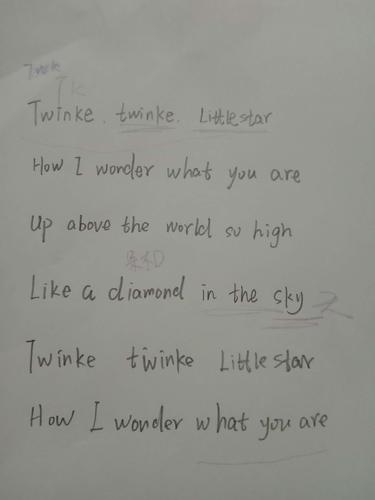 Twinke. twinke. Little star
How I wonder what you are
Up above the world so high
Like a diamond in the sky
Twinke twinke Little star
How I wonder what you are